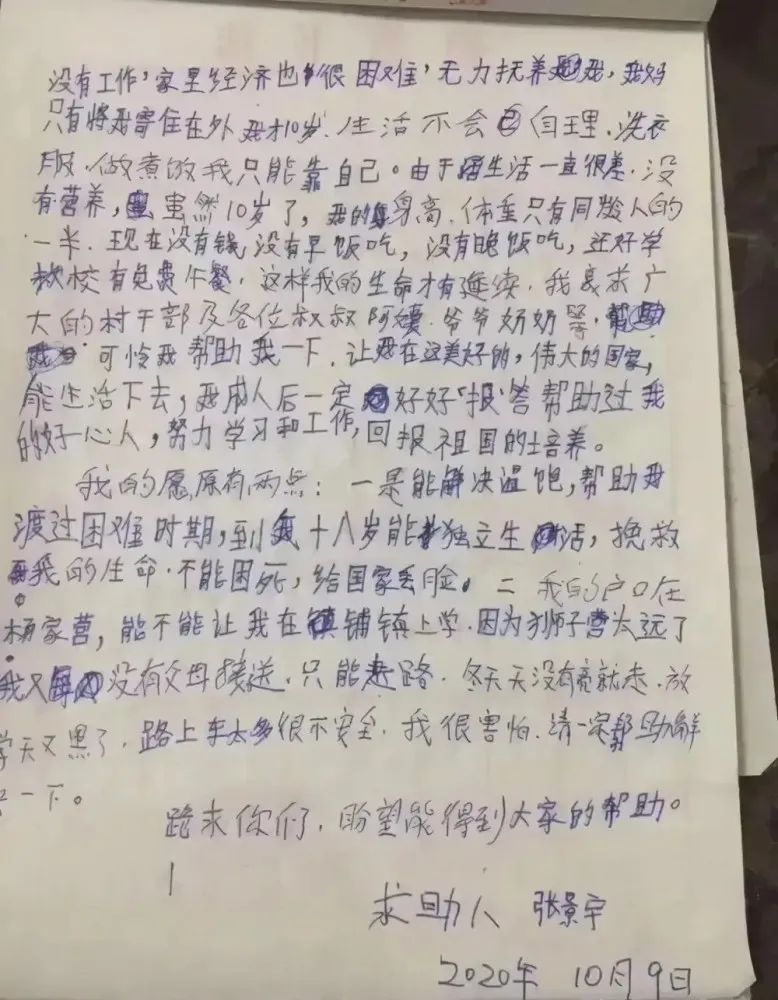 没有工作，家里经济也很困难，无力抚养我，我妈
只有将我寄住在外我才10岁.生活不会自理.洗衣
服.做煮饭我只能靠自己。由于生活一直很差.没
有营养，虽然10岁了，我的身高.体重只有同龄人的
一半.现在没有钱没有早饭吃，没有晚饭吃，还好学
校有免费午餐.这样我的生命才有延续.我哀求广
大的村干部及各位叔叔阿姨.爷爷奶奶等.
可怜我帮助我一下.让我在这美好的，伟大的国家，
能生活下去，我成人后一定好好报答帮助过我
的好心人，努力学习和工作，回报祖国的培养。
我的愿原有两点：一是能解决温饱，帮助我
渡过困难时期，到我十八岁能独立生活，挽救
我的生命.不能困死，给国家丢脸。二我的户口在
杨家营，能不能让我在镇铺镇上学.因为狮子营太远了
我又没有父母接送.只能走路.冬天天没有亮就走.放
学天又黑了.路上车太多很不安全.我很害怕.请一定帮助解
一下。
跪求你们.盼望能得到大家的帮助。
求助人 张景宇
2020年 10月9日